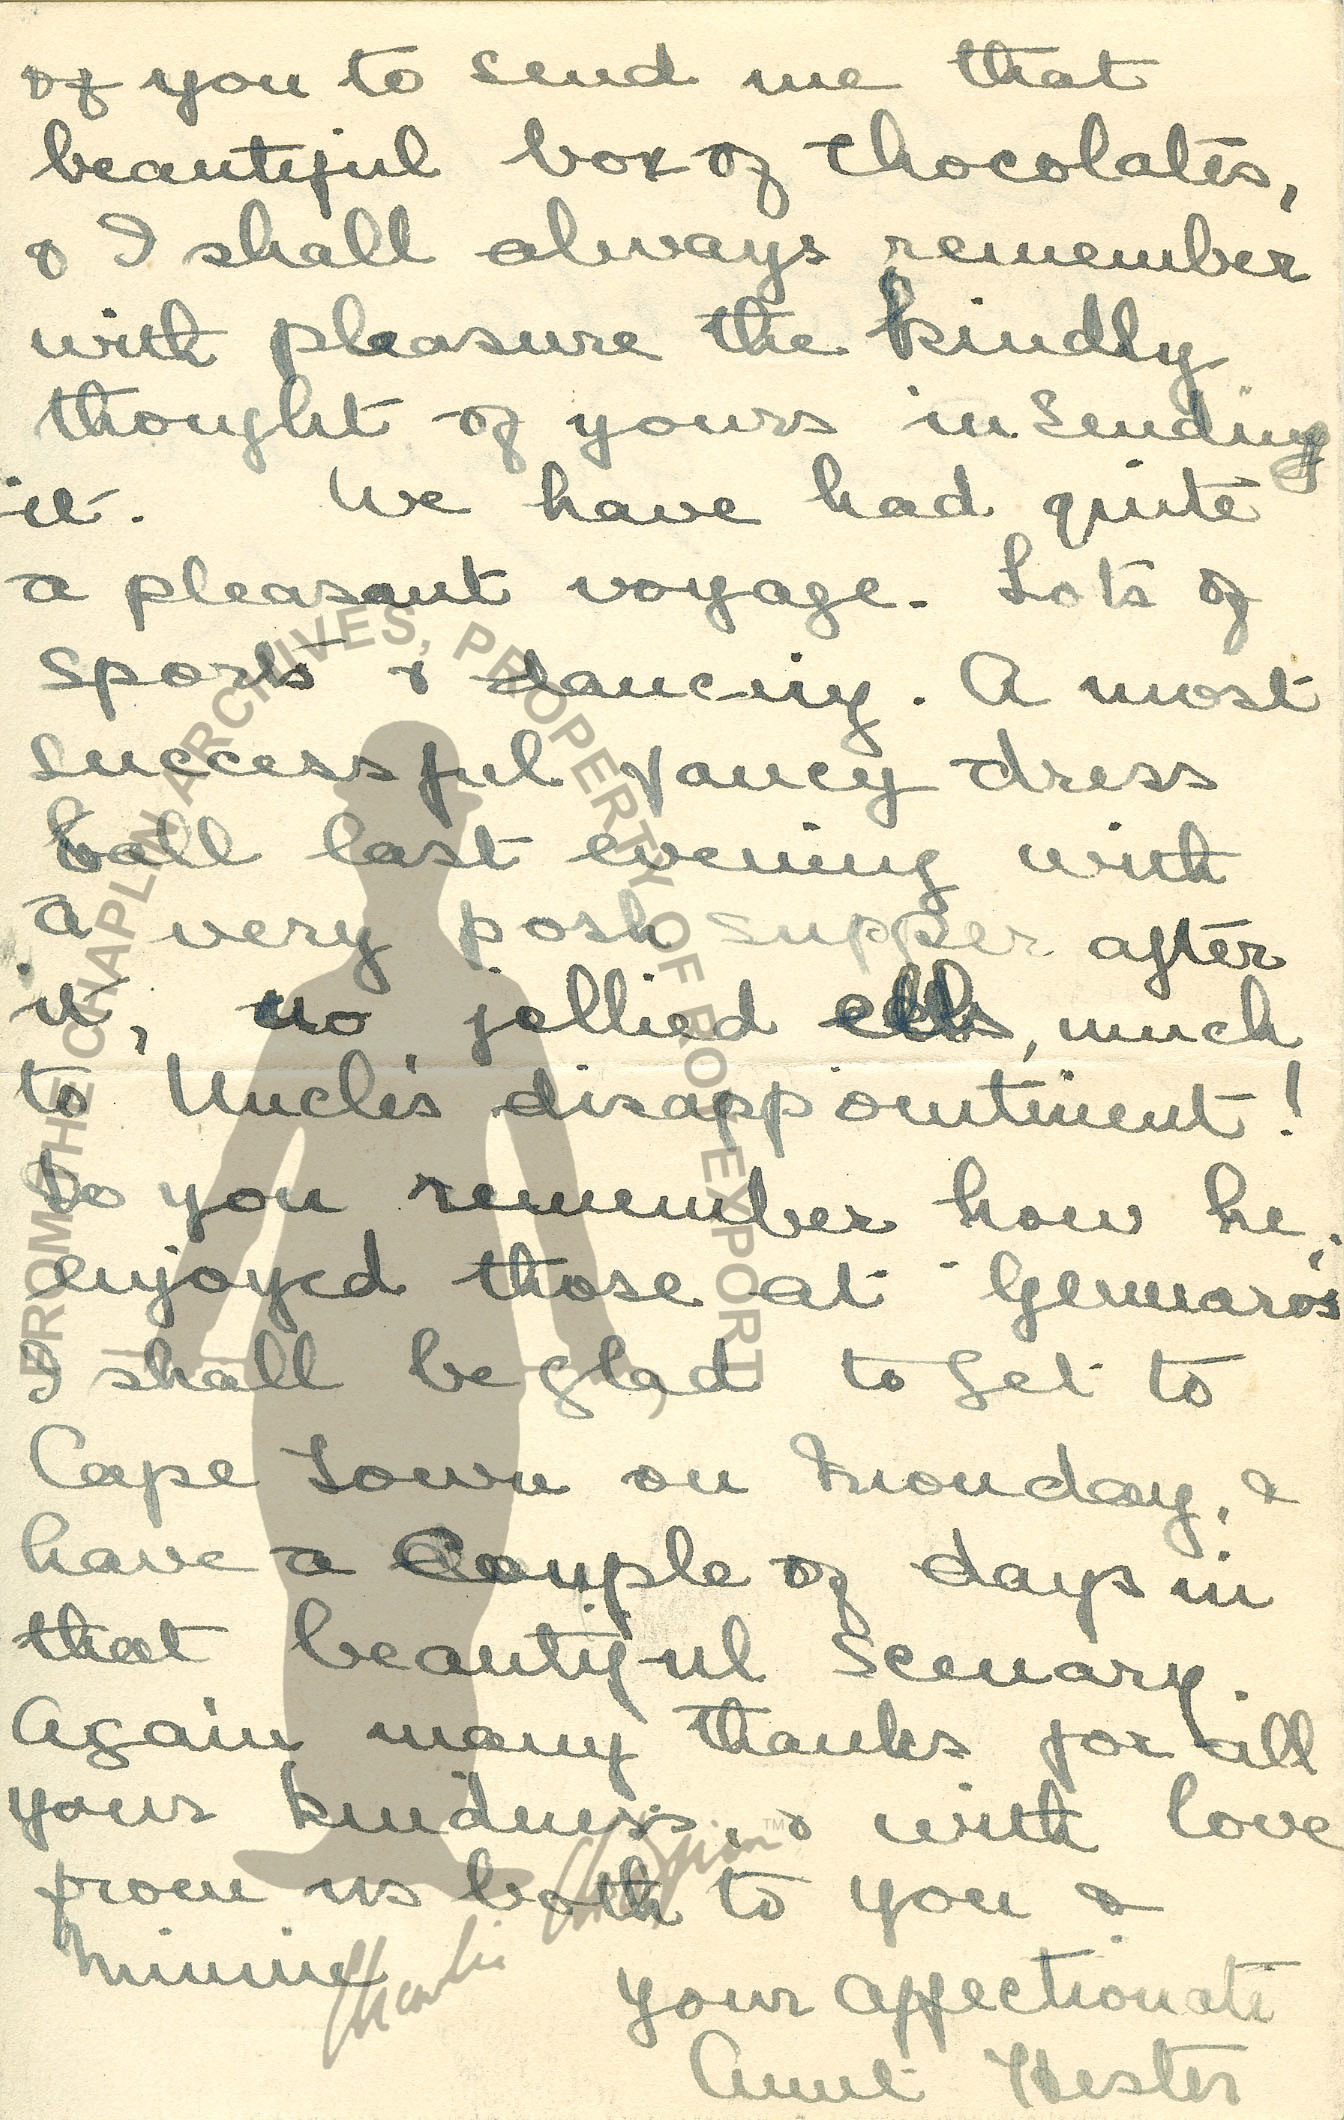 of you to send me that
beautiful box of chocolates,
& I shall always remember
with pleasure the kindly
thought of yours in sending
it. We have had quite
a pleasant voyage. Lots of
sports & dancing. A most
successful fancy dress
ball last evening with
a very posh supper after
it, no jellied eels, much
to Uncle's disappointment!
Do you remember how he
enjoyed those at Gennaro's
I shall be glad to get to
Cape Town on Monday, &
have a couple of days in
that beautiful scenary.
Again many thanks for all
your kindness, & with love
from us both to you &
Minnie
your affectionate
Aunt Hester
FROM THE CHAPLIN ARCHIVES, PROPERTY OF ROY EXPORT
Charlie Chaplin™